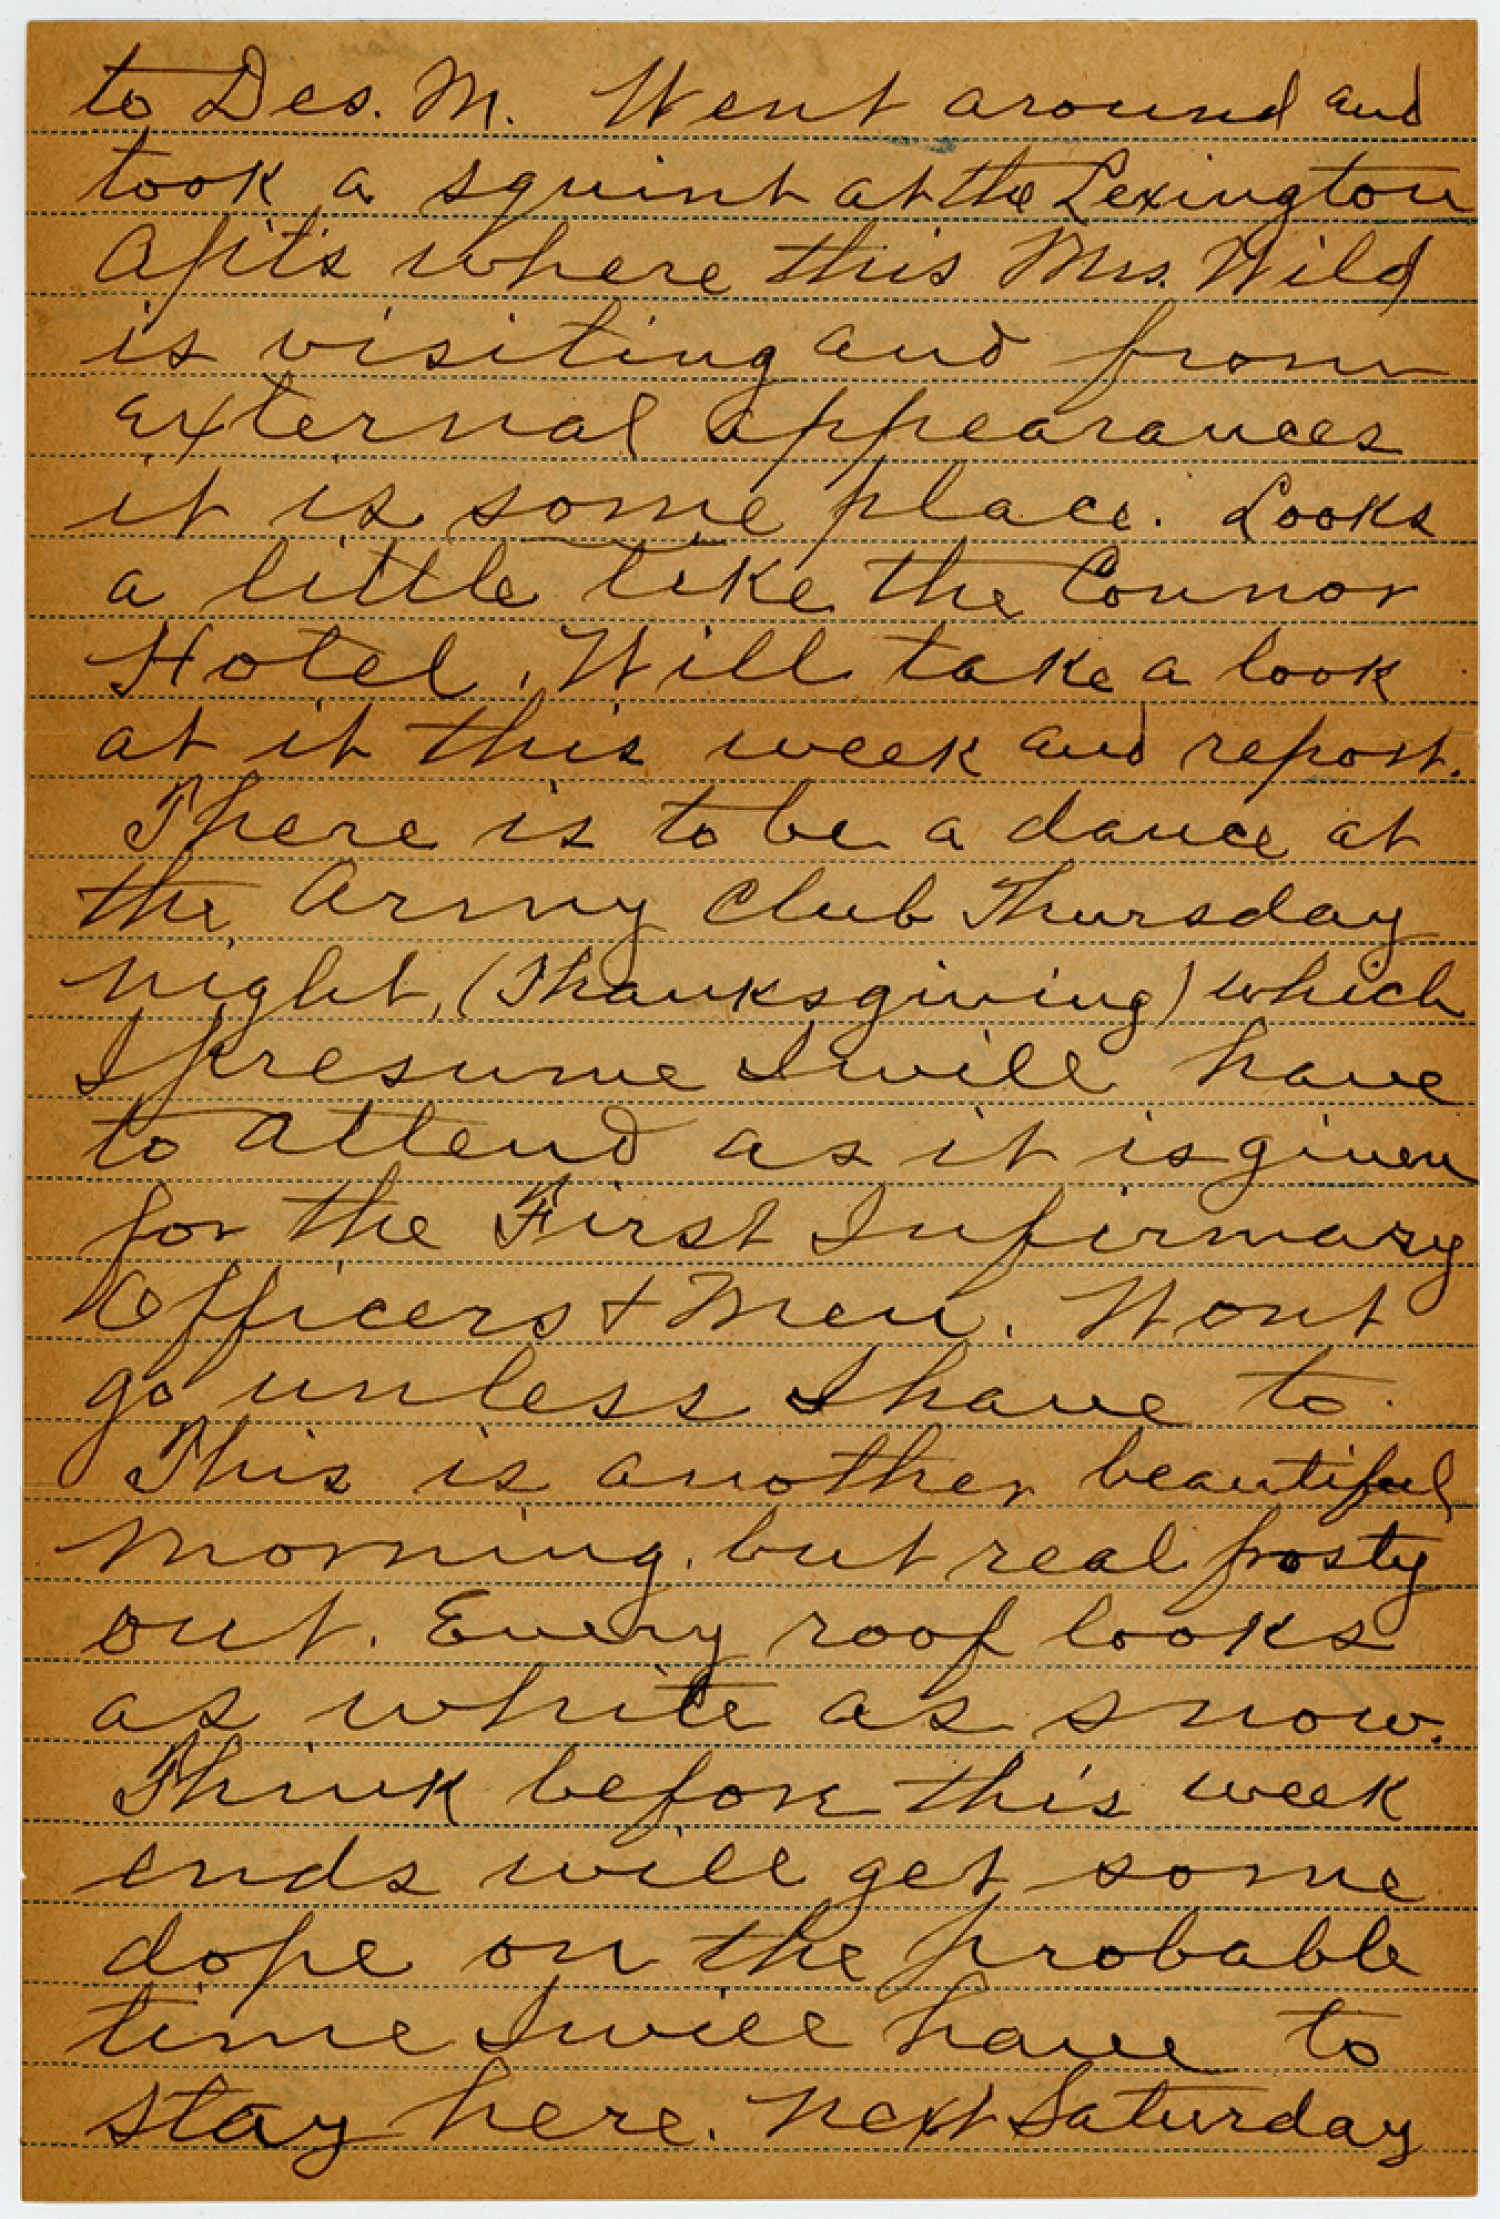 to Des. M. Went around and
took a squint at the Lexington
Apt's where this Mrs. Wild
is visiting and from
external appearances
it is some place. Looks
a little like the Connor
Hotel. Will take a look
at it this week and report.
There is to be a dance at
the Army Club Thursday
night, (Thanksgiving) which
I presume I will have
to attend as it is given
for the First Infirmary
Officers + Men. Wont
go unless I have to.
This is another beautiful
morning, but real frosty
out. Every roof looks
as white as snow.
Think before this week
ends will get some
dope on the probable
time I will have to
stay here. Next Saturday